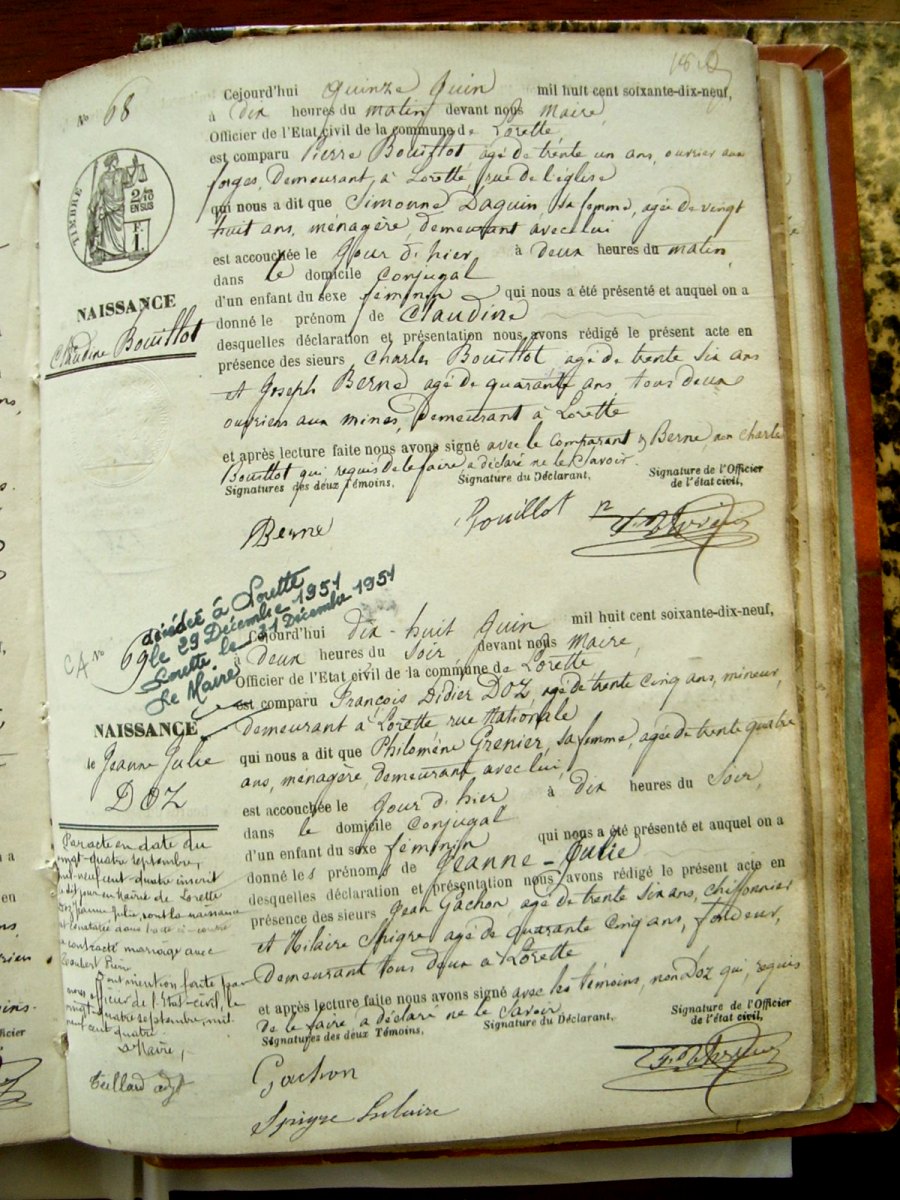 N° 68
Cejourd'hui quinze Juin mil huit cent soixante-dix-neuf,
à dix heures du matin devant nous Maire,
Officier de l'Etat civil de la commune de Lorette,
est comparu Pierre Bouillot, agé de trente un ans, ouvrier aux
forges, demeurant, à Lorette, rue de l'église
qui nous a dit que Simonne Daguin, sa femme, agée de vingt
huit ans, ménagère, demeurant avec lui
est accouchée le Jour d'hier, à deux heures du matin,
dans le domicile conjugal
d'un enfant du sexe féminin qui nous a été présenté et auquel on a
donné le prénom de Claudine
desquelles déclaration et présentation nous avons rédigé le présent acte en
présence des sieurs Charles Bouillot agé de trente six ans
et Joseph Berne agé de quarante ans tous deux
ouvriers aux mines, demeurant à Lorette
et après lecture faite nous avons signé avec le comparant & Berne non Charle
Bouillot qui requis de le faire a déclaré ne le Savoir.
Signatures des deux Témoins, Signature du Déclarant, Signature de l'Officier
de l'état civil,
Berne Bouillot
TIMBRE
2/10
EN SUS
F.
1.
NAISSANCE
Claudine Bouillot
décédée à Lorette
le 29 Décembre 1951
Lorette le 31 Décembre 1951
Le Maire
N° 69
Cejourd'hui dix-huit Juin mil huit cent soixante-dix-neuf,
à deux heures du Soir devant nous Maire,
Officier de l'Etat civil de la commune de Lorette
est comparu François Didier DOZ agé de trente cinq ans, mineur,
demeurant à Lorette rue Nationale
qui nous a dit que Philomène Grenier, sa femme, agée de trente quatre
ans, ménagère, demeurant avec lui,
est accouchée le Jour d'hier à dix heures du Soir,
dans le domicile conjugal
d'un enfant du sexe féminin qui nous a été présenté et auquel on a
donné les prénoms de Jeanne-Julie
desquelles déclaration et présentation nous avons rédigé le présent acte en
présence des sieurs Jean Gachon, agé de trente six ans, chiffonnier
et Hilaire Spigre agé de quarante cinq ans, fondeur,
demeurant tous deux à Lorette
et après lecture faite nous avons signé avec les témoins, non Doz qui, requis
de le faire a déclaré ne le Savoir
Signatures des deux Témoins, Signature du Déclarant, Signature de l'Officier
de l'état civil,
Gachon
Spigre hilaire
NAISSANCE
de Jeanne Julie
DOZ
Par acte en date du
vingt-quatre septembre,
mil neuf cent quatre inscrit
dit jour en Mairie de Lorette
Doz Jeanne Julie, dont la naissance
est constatée dans l'acte ci-contre
a contracté mariage avec
Pierre
Dont mention faite par
nous officier de l'Etat-civil, le
vingt-quatre septembre, mil
neuf cent quatre.
Le Maire,